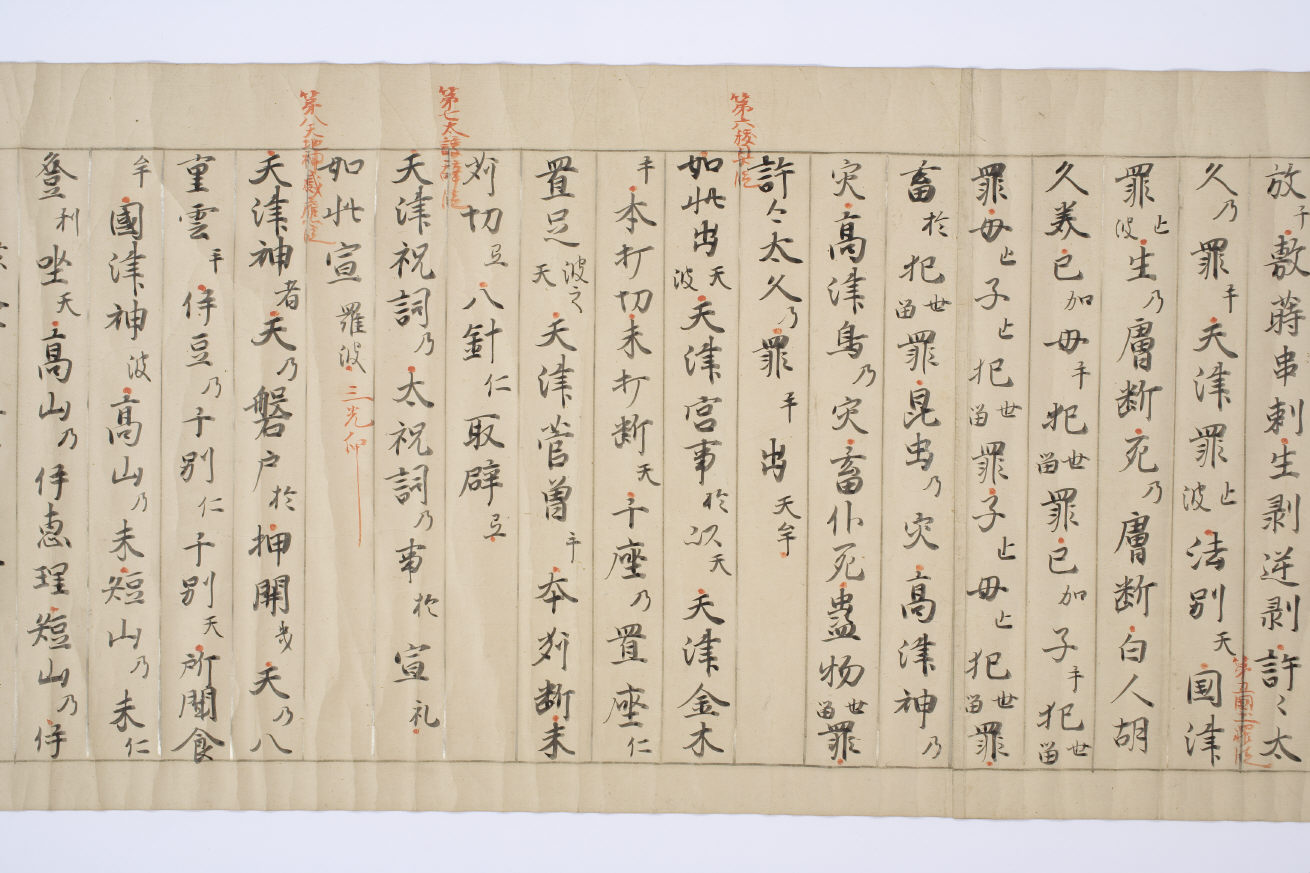 放 敷蒔串刺生剥逆剥許〻太
久乃罪乎天津罪止波法別天国津
罪止波生乃膚断死乃膚断白人胡
久美己加母乎犯世留罪己加子乎犯世留
罪母止子止犯世留罪子止母止犯世留罪
畜於犯世留罪昆虫乃灾高津神乃
灾高津鳥乃灾畜仆死蟲物世留罪
許々太久乃罪乎出天牟
如此出天波天津宮事於以天天津金木
乎本打切末打断天千座乃置座仁
置足波之天天津菅曽乎本刈断末
刈切弖八針仁取辟弖
天津祝詞乃太祝詞乃事於宣礼
如此宣羅波 三光仰
天津神者天乃磐戸於押開幾天乃八
重雲乎伊豆乃千別仁千別天所聞食
牟國津神波高山乃末短山乃末仁
登利坐天高山乃伊恵理短山乃伊
第六
第七太
第八天地神